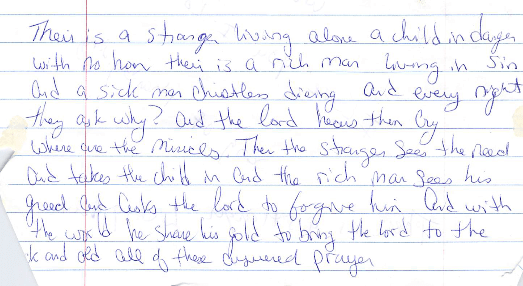 Their is a stranger living alone a child in danger
with no hom their is a rich man living in Sin
And a sick man christless dieing and every night
they ask why? and the lord hears them Cry
Where are the miricles. Then the stranger Sees the need
And takes the child in and the rich man Sees his
greed and asks the lord to forgive him And with
the world he share his gold to bring the lord to the
k and old all of these answered prayer